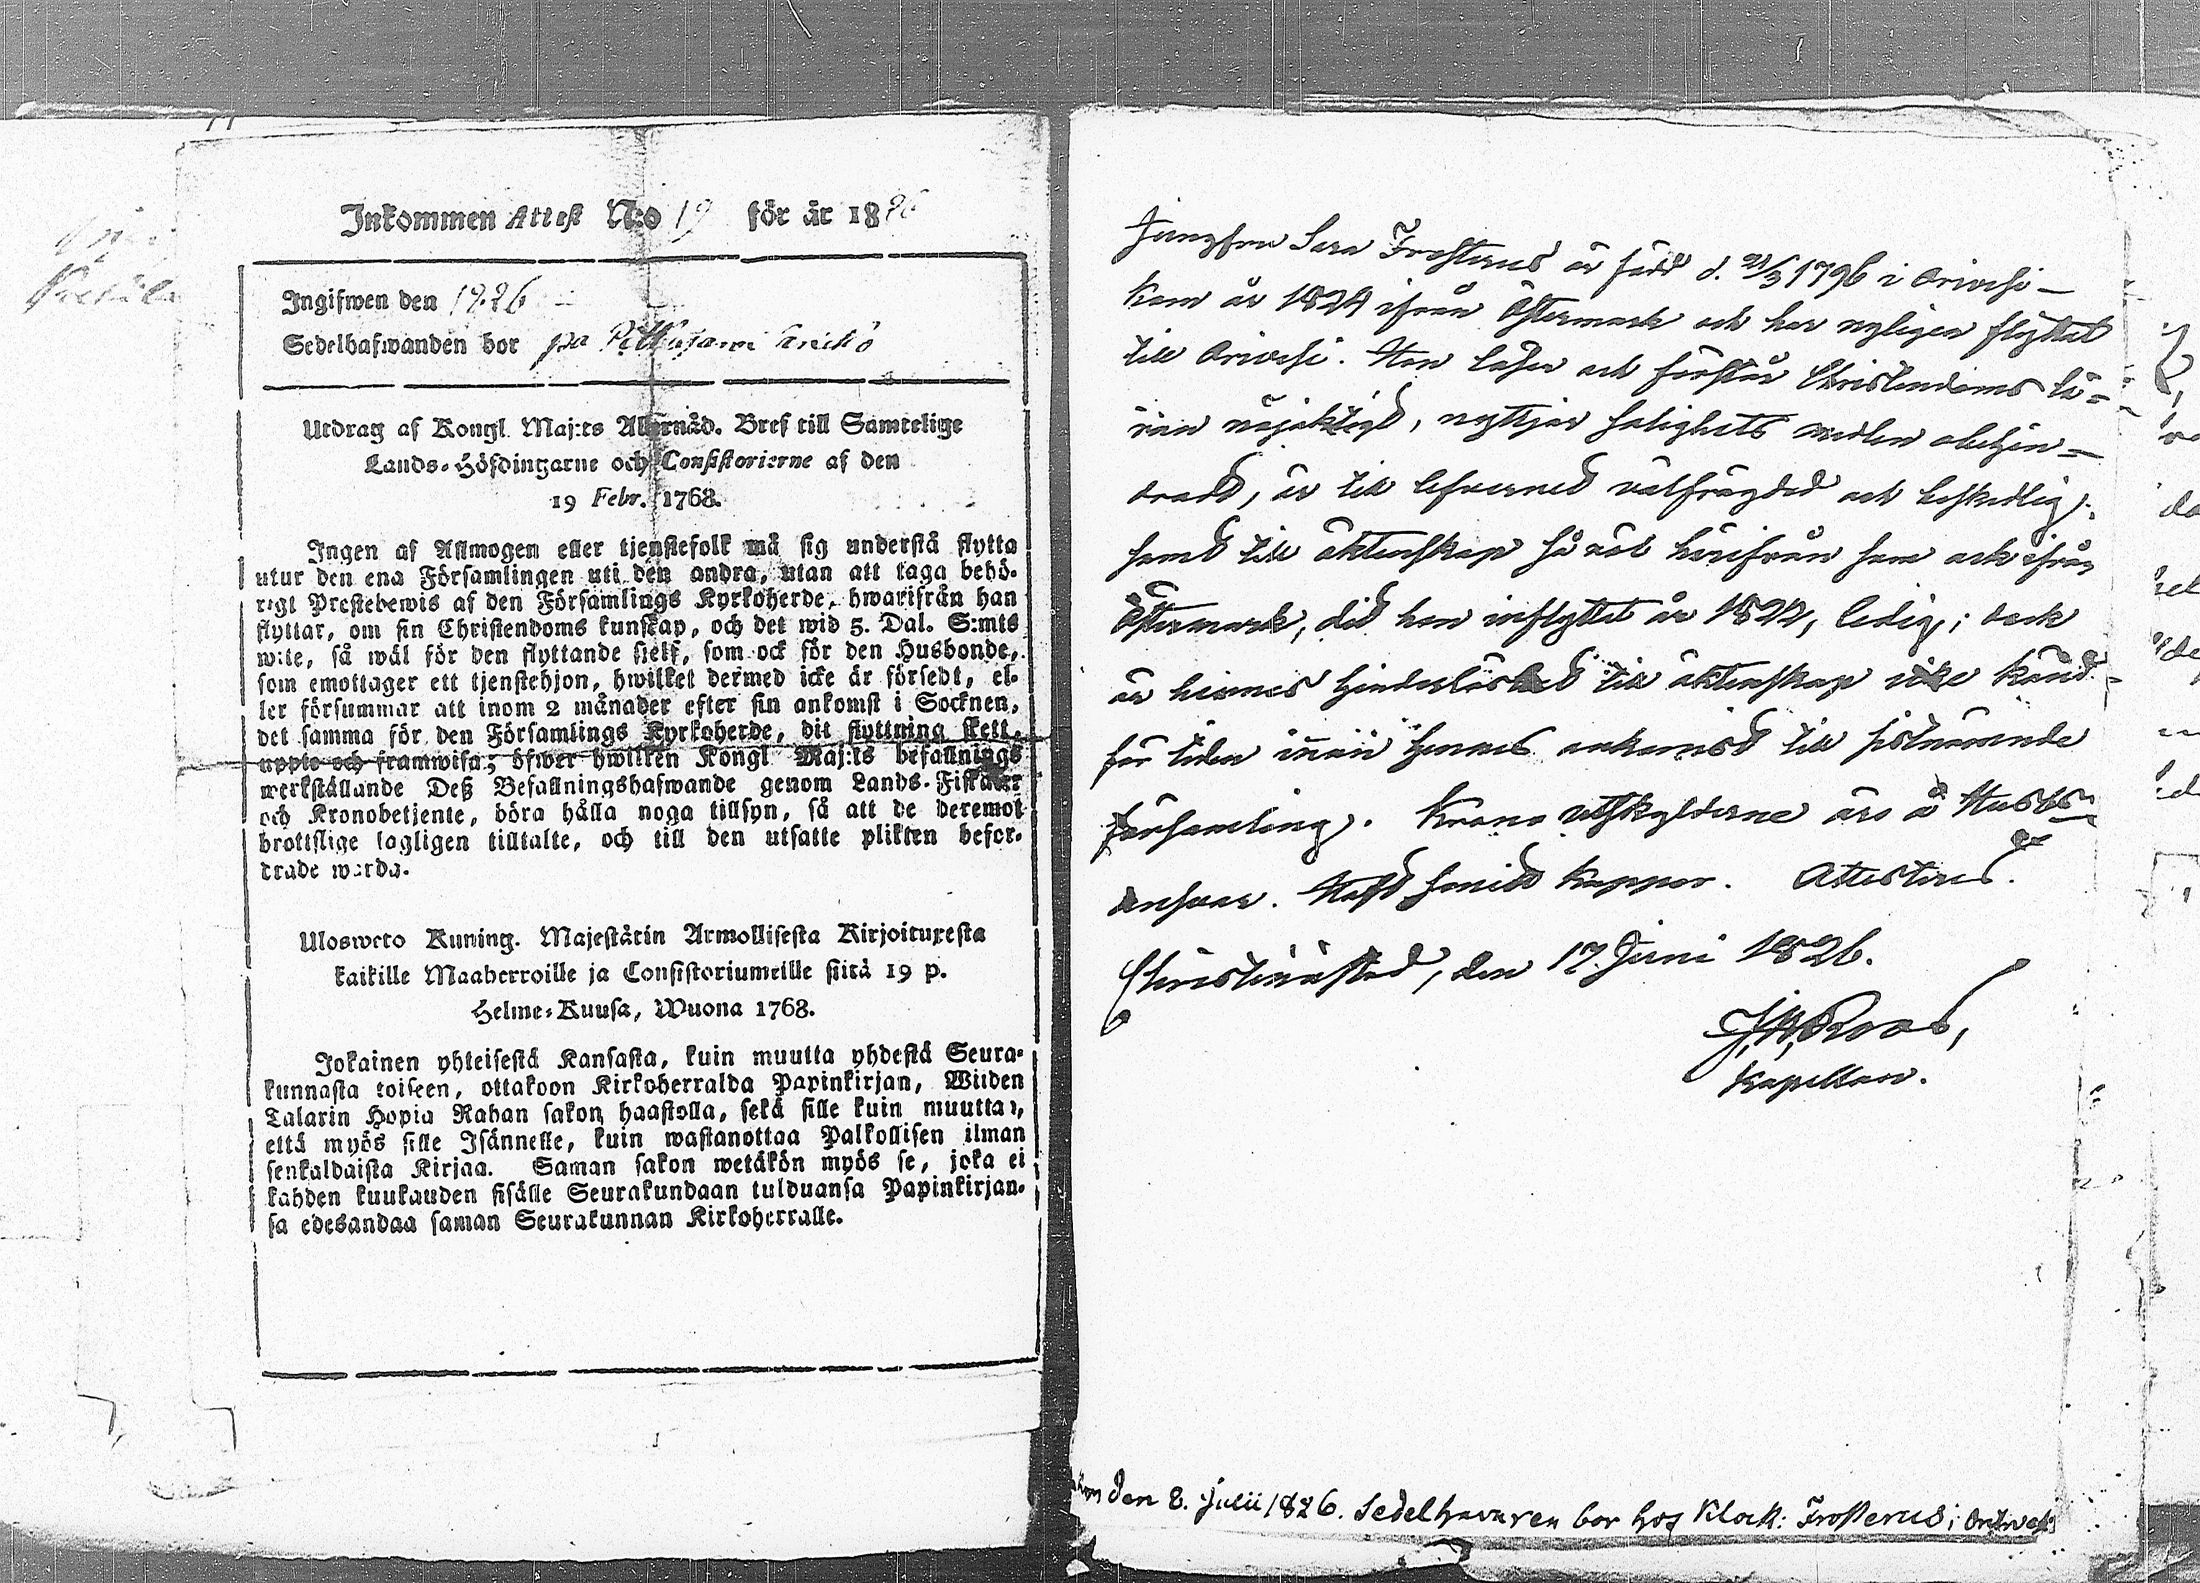 Inkommen Attest N:o 19 för år 1826
Ingifwen den 19.26
Sedelhafwanden bor på
Utdrag af Kongl. Maj:ts Allernåd. Bref till Samtelige
Lands-Höfdingarne och Consistorierne af den
19 Febr. 1768.
Ingen af Allmogen eller tjenstefolk må sig understå flytta
utur den ena Församlingen uti den andra, utan att taga behö-
rigt Prestebewis af den Församlings Kyrkoherde, hwarifrån han
flyttar, om sin Christendoms kunskap, och det wid 5. Dal. S:mts
wite, så wäl för den flyttande sjelf, som ock för den Husbonde,
som emottager ett tjenstehjon, hwilket dermed icke är försedt, el-
ler försummar att inom 2 månader efter sin ankomst i Socknen,
det samma för den Församlings Kyrkoherde, dit flyttning skett,
uppte och framwisa; öfwer hwilken Kongl Maj:ts befallnings
werkställande Deß Befallningshafwande genom Lands-Fiskaler
och Kronobetjente, böra hålla noga tillsyn, så att de deremot
brottslige lagligen tilltalte, och till den utsatte plikten befor-
drade warda.
Ulosweto Kuning. Majestätin Armollisesta Kirjoituxesta
kaikille Maaherroille ja Consistoriumeille siitä 19 p.
Helme-Kuusa, Wuona 1768.
Jokainen yhteisestä Kansasta, kuin muutta yhdestä Seura-
kunnasta toiseen, ottakoon Kirkoherralda Papinkirjan, Wiiden
Talarin Hopia Rahan sakon haastolla, sekä sille kuin muuttaa,
että myös sille Isännelle, kuin wastanottaa Palkollisen ilman
senkaldaista Kirjaa. Saman sakon wetäkön myös se, joka ei
kahden kuukauden sisälle Seurakundaan tulduansa Papinkirjan-
sa edesandaa saman Seurakunnan Kirkoherralle.
Jungfru Sara Frosterus är född d. 21/3 1796 i Orivesi –
kom år 1824 ifrån Östermark och har nyligen flyttat
till Orivesi. Hon läser och förstår Christendoms lä-
ran nöjaktigt, nyttjar salighets medlen obehin-
dradt, är till lefvernet välfrägdad och beskedlig;
samt till äktenskap så väl härifrån som ock ifrån
Östermark, dit hon inflyttat år 1822, ledig; dock
är hennes hinderlöshet till äktenskap icke känd
för tiden innan hennes ankomst till sistnämnde
församling. Krono utskylderne äro å Husbs
ansvar. Haft Koppor. Attesteras.
Christinæstad, den 17 Juni 1826.
Roos,
Kapellan.
den 8. Julii 1826. Sedelhavaren bor hos Klock: Frosterus i Orivesi